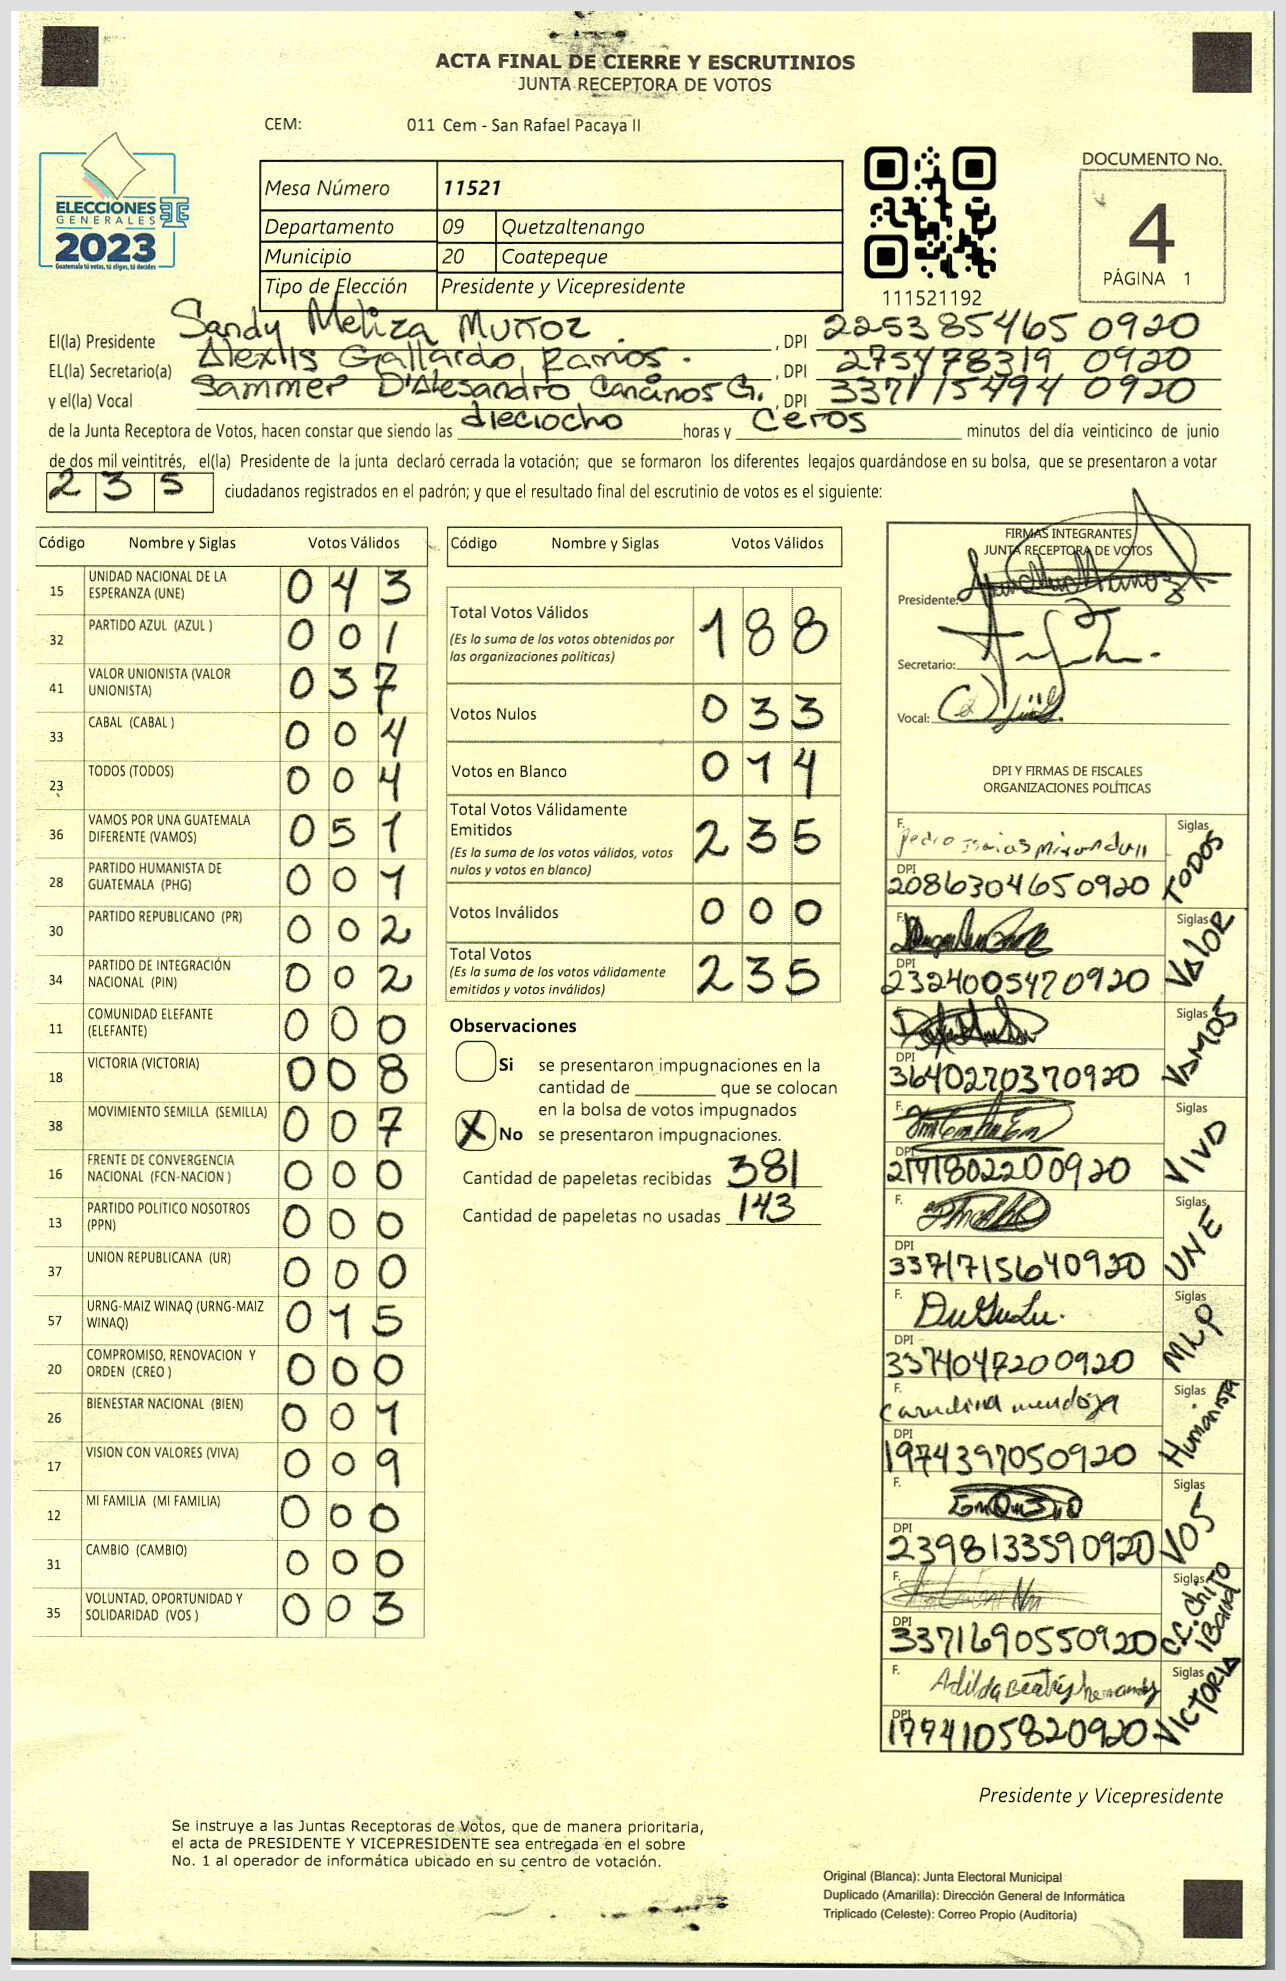 ACTA FINAL DE CIERRE Y ESCRUTINIOS
JUNTA RECEPTORA DE VOTOS
CEM: 011 Cem - San Rafael Pacaya II
ELECCIONES
GENERALES
2023
Guatemala tú votas, tú eliges, tú decides
Mesa Número 11521
Departamento 09 Quetzaltenango
Municipio 20 Coatepeque
Tipo de Elección Presidente y Vicepresidente
111521192
DOCUMENTO No.
4
PÁGINA 1
El(la) Presidente Sandy Meliza Muñoz , DPI 2253854650920
EL(la) Secretario(a) Alexis Gallardo Ramos. , DPI 275478319 0920
y el(la) Vocal Sammer D'Alesandro Cancinos G. , DPI 337115494 0920
de la Junta Receptora de Votos, hacen constar que siendo las dieciocho horas y Ceros minutos del día veinticinco de junio
de dos mil veintitrés, el(la) Presidente de la junta declaró cerrada la votación; que se formaron los diferentes legajos guardándose en su bolsa, que se presentaron a votar
235 ciudadanos registrados en el padrón; y que el resultado final del escrutinio de votos es el siguiente:
Código Nombre y Siglas Votos Válidos
15 UNIDAD NACIONAL DE LA ESPERANZA (UNE) 043
32 PARTIDO AZUL (AZUL ) 001
41 VALOR UNIONISTA (VALOR UNIONISTA) 037
33 CABAL (CABAL ) 004
23 TODOS (TODOS) 004
36 VAMOS POR UNA GUATEMALA DIFERENTE (VAMOS) 051
28 PARTIDO HUMANISTA DE GUATEMALA (PHG) 001
30 PARTIDO REPUBLICANO (PR) 002
34 PARTIDO DE INTEGRACIÓN NACIONAL (PIN) 002
11 COMUNIDAD ELEFANTE (ELEFANTE) 000
18 VICTORIA (VICTORIA) 008
38 MOVIMIENTO SEMILLA (SEMILLA) 007
16 FRENTE DE CONVERGENCIA NACIONAL (FCN-NACION ) 000
13 PARTIDO POLITICO NOSOTROS (PPN) 000
37 UNION REPUBLICANA (UR) 000
57 URNG-MAIZ WINAQ (URNG-MAIZ WINAQ) 015
20 COMPROMISO, RENOVACION Y ORDEN (CREO ) 000
26 BIENESTAR NACIONAL (BIEN) 001
17 VISION CON VALORES (VIVA) 009
12 MI FAMILIA (MI FAMILIA) 000
31 CAMBIO (CAMBIO) 000
35 VOLUNTAD, OPORTUNIDAD Y SOLIDARIDAD (VOS ) 003
Código Nombre y Siglas Votos Válidos
Total Votos Válidos 188
(Es la suma de los votos obtenidos por
las organizaciones políticas)
Votos Nulos 033
Votos en Blanco 014
Total Votos Válidamente
Emitidos 235
(Es la suma de los votos válidos, votos
nulos y votos en blanco)
Votos Inválidos 000
Total Votos 235
(Es la suma de los votos válidamente
emitidos y votos inválidos)
Observaciones
Si se presentaron impugnaciones en la
cantidad de ________ que se colocan
en la bolsa de votos impugnados
X No se presentaron impugnaciones.
Cantidad de papeletas recibidas 381
Cantidad de papeletas no usadas 143
FIRMAS INTEGRANTES
JUNTA RECEPTORA DE VOTOS
Presidente:
Secretario:
Vocal:
DPI Y FIRMAS DE FISCALES
ORGANIZACIONES POLÍTICAS
F. Siglas TODOS
DPI 2086304650920
F. Siglas VALOR
DPI 2324005470920
F. Siglas VAMOS
DPI 3640270370920
F. Siglas VIVA
DPI 2171802200920
F. Siglas UNE
DPI 3371715640920
F. Siglas MLP
DPI 3374047200920
F. Carolina mendoza Siglas Humanista
DPI 1974397050920
F. Siglas VOS
DPI 2398133590920
F. Siglas C.C. Chito
DPI 3371690550920
F. Adilda Beatriz Siglas VICTORIA
DPI 1774105820920
Presidente y Vicepresidente
Se instruye a las Juntas Receptoras de Votos, que de manera prioritaria,
el acta de PRESIDENTE Y VICEPRESIDENTE sea entregada en el sobre
No. 1 al operador de informática ubicado en su centro de votación.
Original (Blanca): Junta Electoral Municipal
Duplicado (Amarilla): Dirección General de Informática
Triplicado (Celeste): Correo Propio (Auditoría)